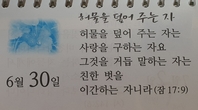 허물을 덮어 주는 자
허물을 덮어 주는 자는
사랑을 구하는 자요
그것을 거듭 말하는 자는
친한 벗을
이간하는 자니라 (잠 17:9)
6월 30일